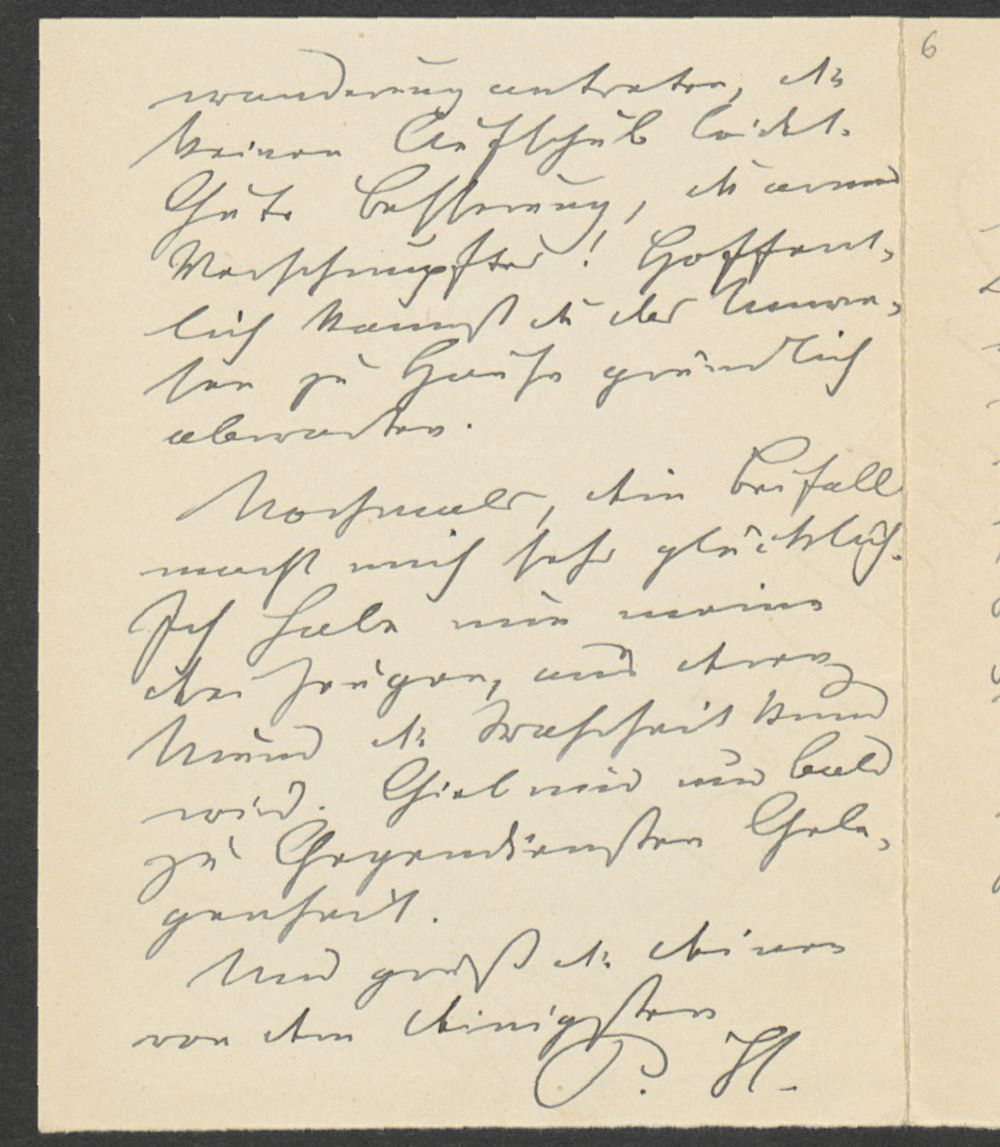 6
wanderung antreten, die
keinen Aufschub leidet.
Gute Besserung, du armer
Verschnupfter! Hoffent-
lich kannst du das Unwe-
sen zu Hause gründlich
abwarten.
Nochmals, dein Beifall
macht mich sehr glücklich.
Ich habe nun meine
drei Zeugen, aus deren
Mund die Wahrheit kund
wird. Gieb mir nur bald
zu Gegendiensten Gele-
genheit.
Und grüß die Deinen
von dem Deinigsten
P. H.